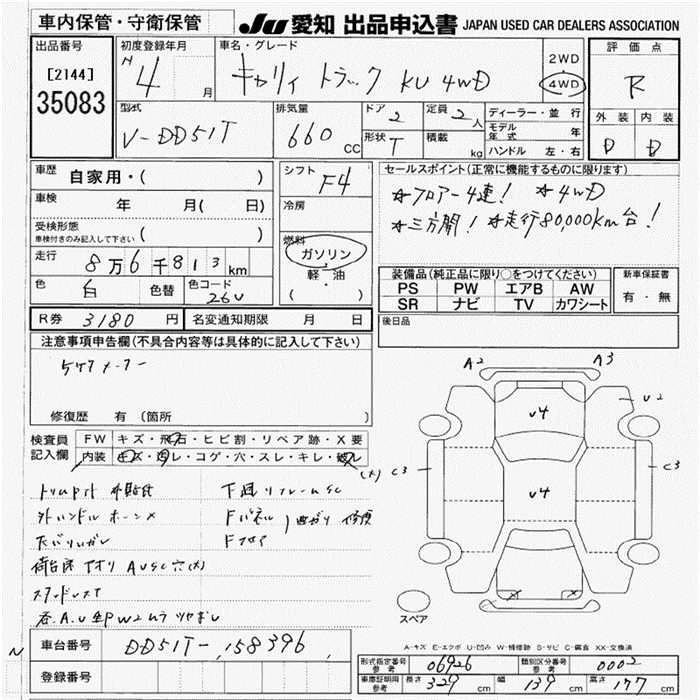 車内保管・守衛保管
JU 愛知 出品申込書 JAPAN USED CAR DEALERS ASSOCIATION
出品番号
[2144]
35083
初度登録年月
4 月
車名・グレード
キャリィ トラック KU 4WD
2WD
4WD
評価点
R
外装 内装
D D
型式
V-DD51T
排気量
660 CC
ドア 2
形状 T
定員 2人
積載 kg
ディーラー・並行
モデル年式 年
ハンドル 左・右
車歴 自家用・( )
車検 年 月( 日)
受検形態
車検付きのみ記入して下さい ( )
走行 8万6千813km
色 白 色替 色コード 26U
シフト F4
冷房
燃料
ガソリン
軽・油
( )
セールスポイント(正常に機能するものに限ります)
☆フロアー4連! ☆4WD
☆三方開! ☆走行80,000km台!
装備品(純正品に限り○をつけてください)
PS PW エアB AW
SR ナビ TV カワシート
新車保証書
有・無
R券 3180 円 名変通知期限 月 日
後日品
注意事項申告欄(不具合内容等は具体的に記入して下さい)
5ケタメーター
修復歴 有 (箇所 )
検査員
記入欄
FW キズ・飛石・ヒビ割・リペア跡・X要
内装 キズ・汚レ・コゲ・穴・スレ・キレ・破レ
(大)
外ハンドル ホーンX
Fパネル 曲ガリ 修復
Fフロア
荷台床 アオリ AUSC穴(大)
A2 A3
U4
U2
C3 C3
U4
スペア
A-キズ E-エクボ U-凹み W-補修跡 S-サビ C-腐食 XX-交換済
車台番号 DD51T-158396
登録番号
形式指定番号 参考 06926 類別区分番号 参考 0002
車庫証明用 参考 長さ 329 cm 幅 139 cm 高さ 177 cm